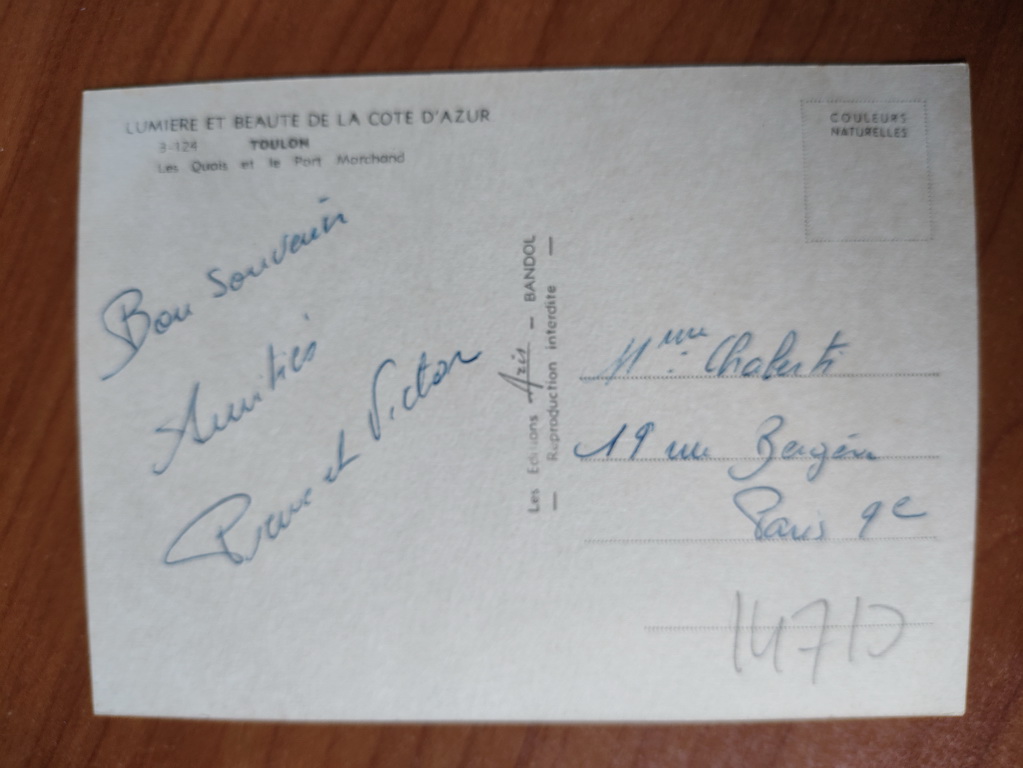 LUMIERE ET BEAUTE DE LA COTE D'AZUR
3-124 TOULON
Les Quais et le Port Marchand
COULEURS
NATURELLES
Bon Souvenir
Amitiés
et Victor
Les Editions Aris — BANDOL
— Reproduction interdite —
Mme Chaberti
19 rue Bergère
Paris 9e